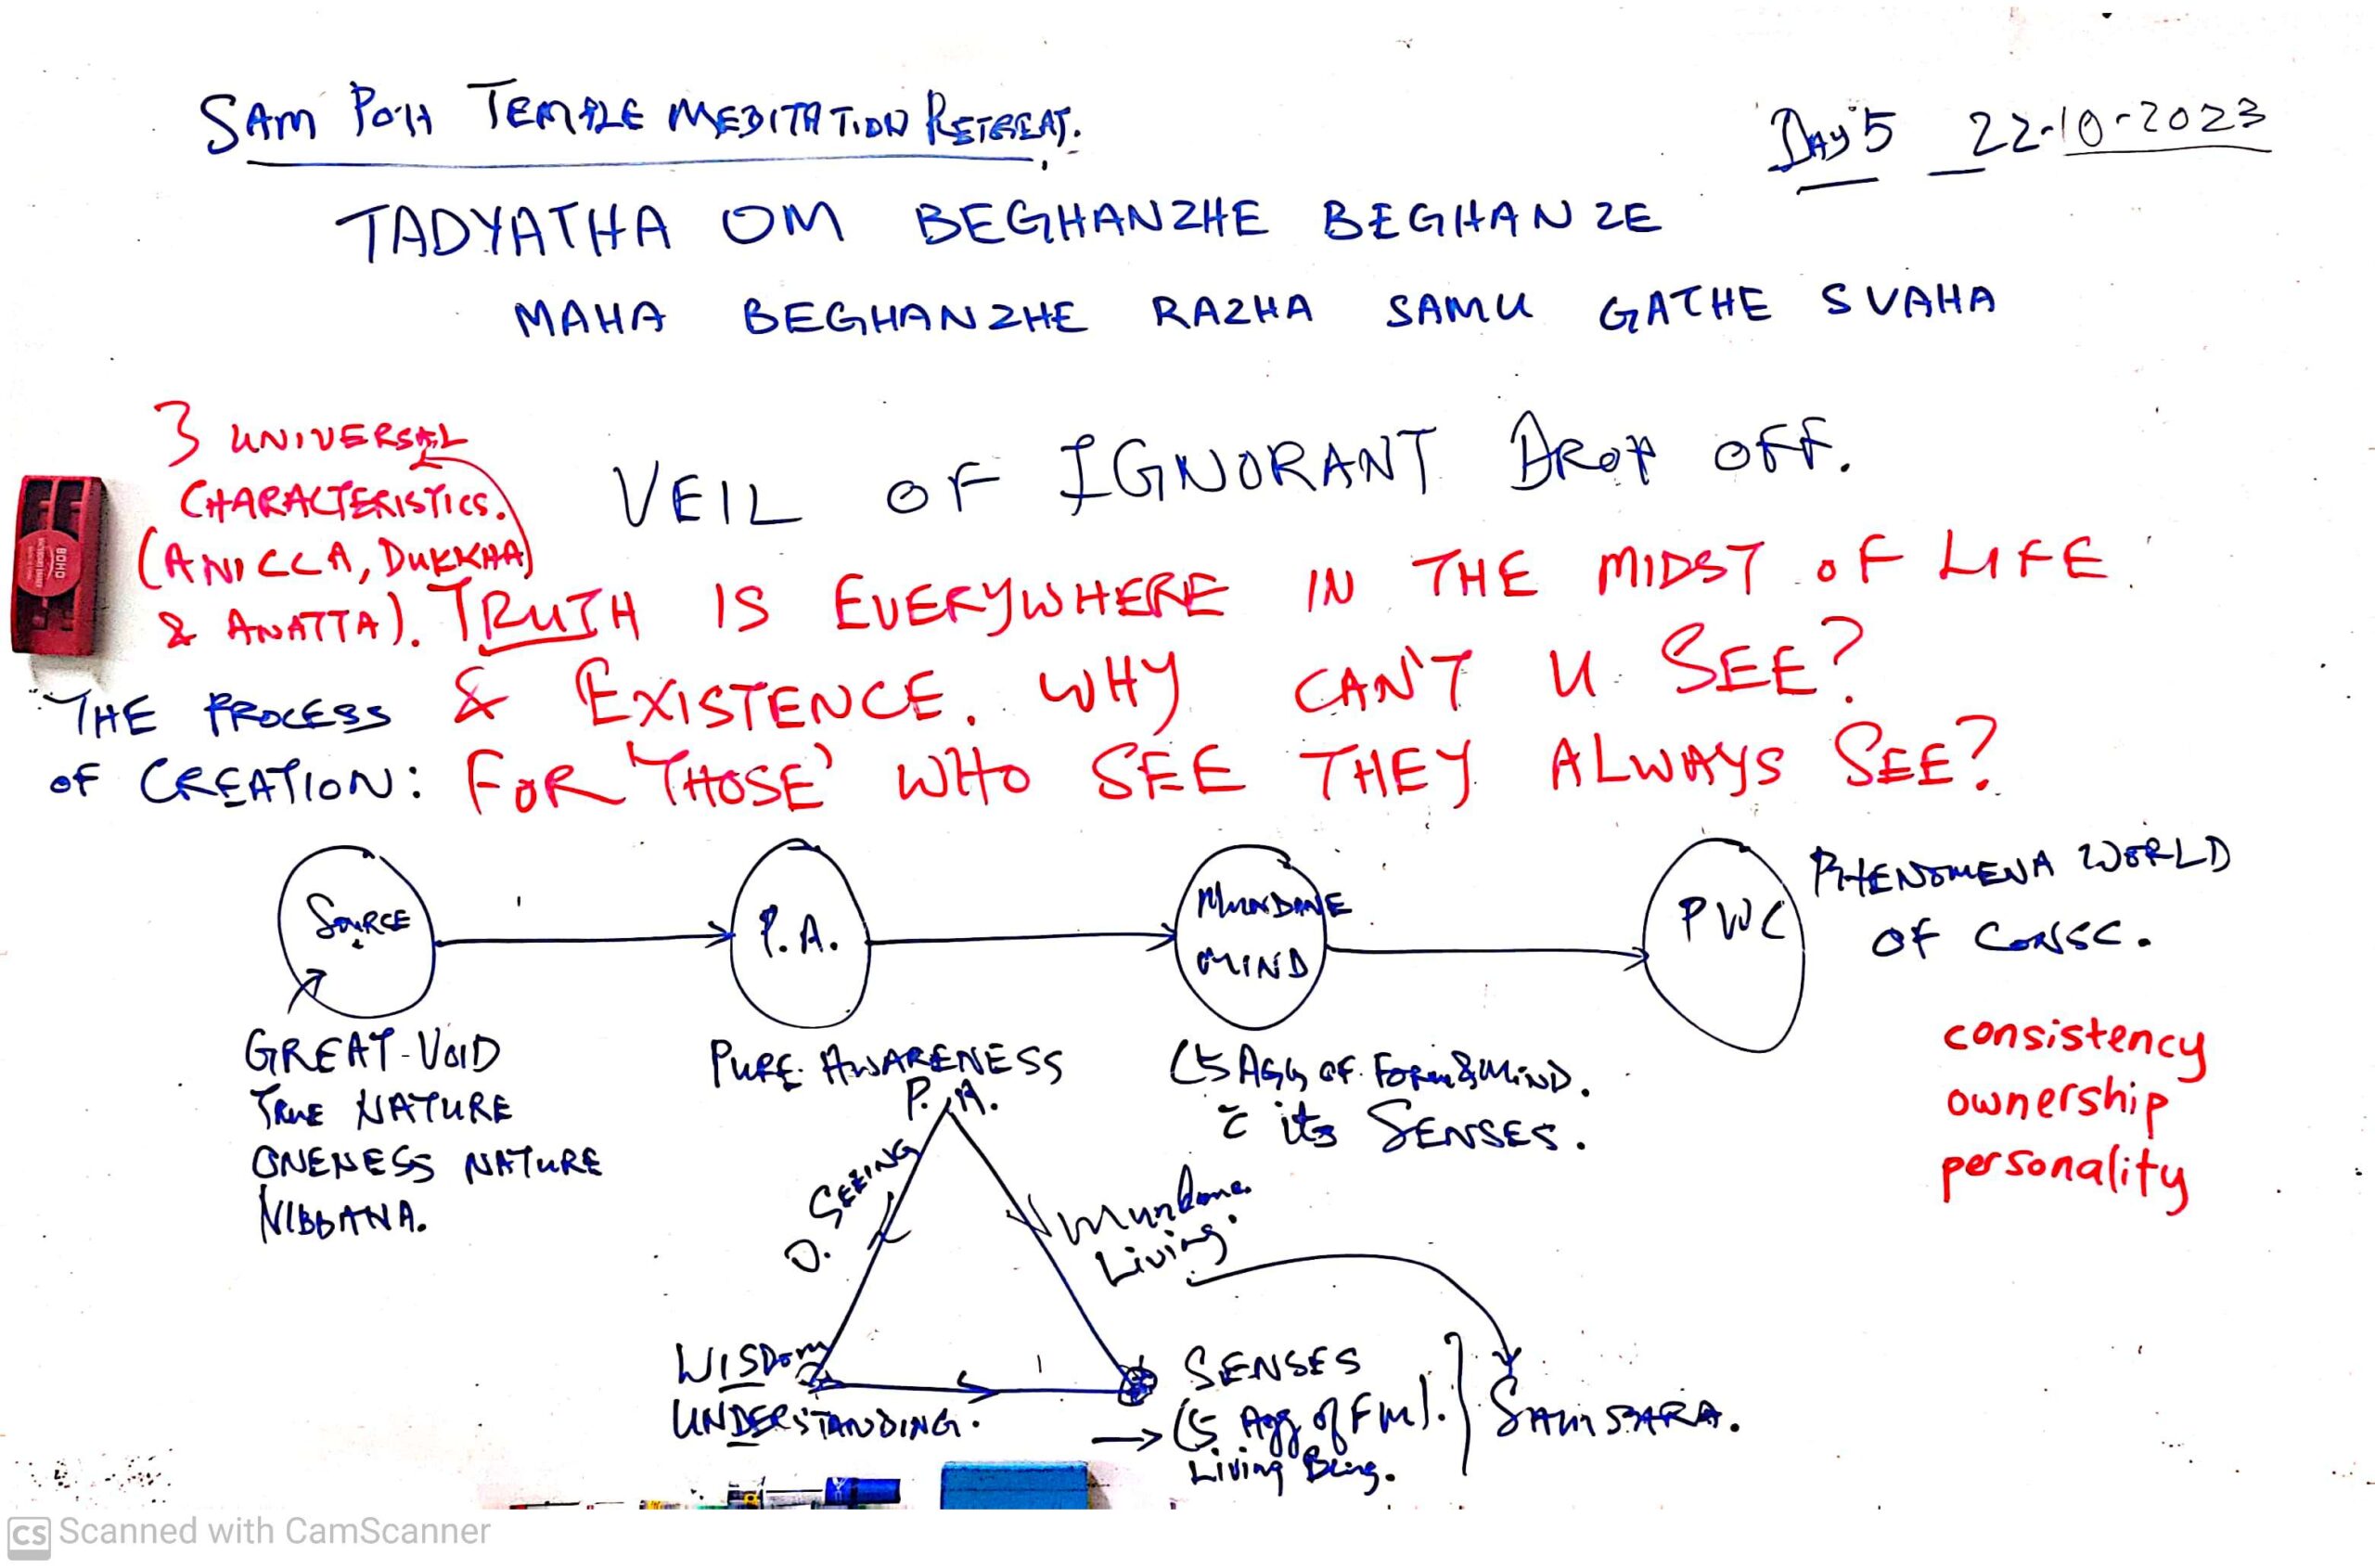 SAM POH TEMPLE MEDITATION RETREAT.
DAY 5 22-10-2023
TADYATHA OM BEGHANZHE BEGHANZE
MAHA BEGHANZHE RAZHA SAMU GATHE SVAHA
3 UNIVERSAL
CHARACTERISTICS.
(ANICCA, DUKKHA
& ANATTA).
VEIL OF IGNORANT DROP OFF.
TRUTH IS EVERYWHERE IN THE MIDST OF LIFE
& EXISTENCE. WHY CAN'T U SEE?
FOR 'THOSE' WHO SEE THEY ALWAYS SEE?
THE PROCESS
OF CREATION:
SOURCE
P.A.
MUNDANE
MIND
PWC
PHENOMENA WORLD
OF CONSC.
GREAT-VOID
TRUE NATURE
ONENESS NATURE
NIBBANA.
PURE AWARENESS
(5 AGG OF FORM & MIND.
c̄ its SENSES.
consistency
ownership
personality
P.A.
D. SEEING
Mundane
Living.
WISDOM
UNDERSTANDING.
SENSES
(5 Agg of FM).
Living Being.
SAMSARA.
BOHO
CS Scanned with CamScanner